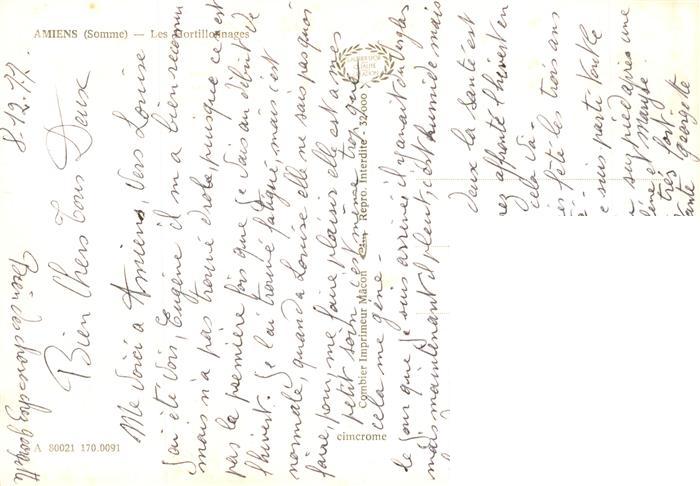 AMIENS (Somme) — Les Hortillonnages
8.12.77.
Bien Chers Tous Deux
Me voici a Amiens, vers Louise
J'ai été voir, Eugène il m'a bien reconnu
mais n'a pas trouvé drole, puisque ce n'est
pas la première fois que je vais au début de
l'hivert. Je l'ai trouvé fatigué, mais c'est
normale, quand a Louise elle ne sais pas quoi
faire, pour, me faire plaisir elle est a mes
petit soin c'est même trop
cela me gène -
le jour que je suis arrivée il y avait du verglas
mais maintenant il pleut, c'est humide mais
deux la santé est
rez affronté l'hivert en
cela va -
es fêté les trois ans
e suis parte
sur pied après une
line et
très fort
Georgette
Bien des choses chez
CALENDRIER
QUALITÉ
Combier Imprimeur Mâcon
Repro. Interdite - 32000
cimcrome
A 80021 170.0091